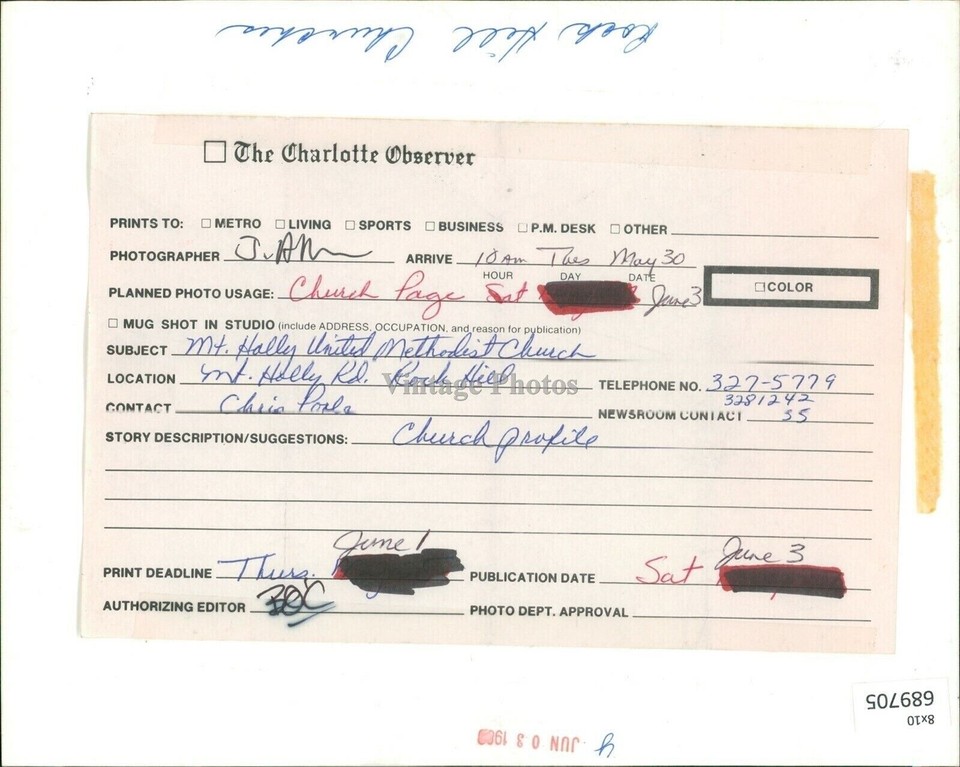 Rock Hill Churches
The Charlotte Observer
PRINTS TO: METRO LIVING SPORTS BUSINESS P.M. DESK OTHER
PHOTOGRAPHER ARRIVE 10 am Tues May 30
HOUR DAY DATE
PLANNED PHOTO USAGE: Church Page Sat June 3
COLOR
MUG SHOT IN STUDIO (include ADDRESS, OCCUPATION, and reason for publication)
SUBJECT Mt. Holly United Methodist Church
LOCATION Mt. Holly Rd. Rock Hill TELEPHONE NO. 327-5779
Vintage Photos
3281242
CONTACT Chris NEWSROOM CONTACT SS
STORY DESCRIPTION/SUGGESTIONS: Church profile
June 1 June 3
PRINT DEADLINE Thurs. PUBLICATION DATE Sat
AUTHORIZING EDITOR PHOTO DEPT. APPROVAL
8x10
689705
JUN 03